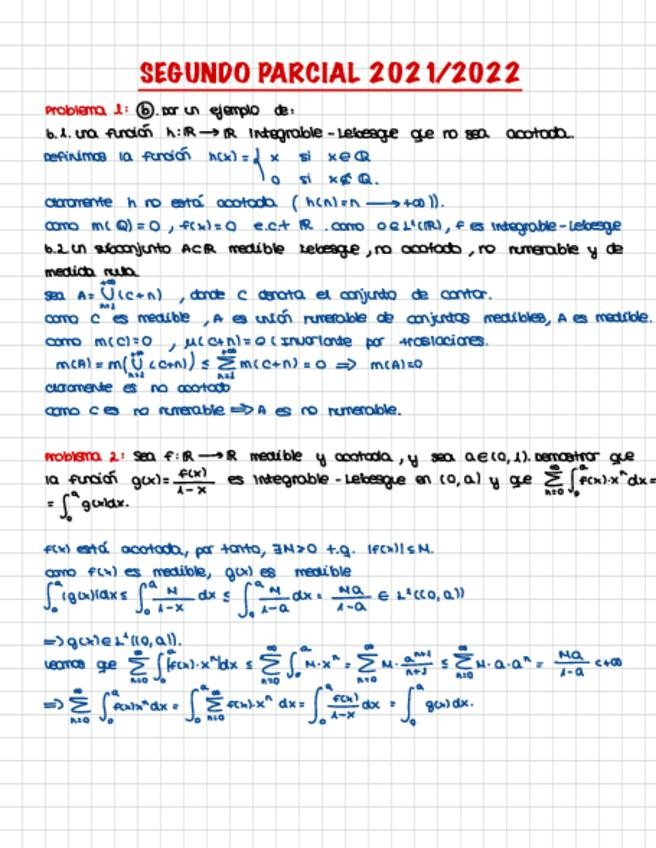 SEGUNDO PARCIAL 2021/2022
Problema 1: (b). Dar un ejemplo de:
b.1. una función h:ℝ→ℝ integrable-Lebesgue que no sea acotada.
Definimos la función h(x)={ x si x∈ℚ
0 si x∉ℚ.
claramente h no está acotada (h(n)=n ⟶+∞)).
como m(ℚ)=0, f(x)=0 e.c.t ℝ. como 0∈L¹(ℝ), f es integrable-Lebesge
b.2 un subconjunto A⊂ℝ medible Lebesgue, no acotado, no numerable y de
medida nula
sea A= ⋃_{n=1}^{+∞} (C+n), donde C denota el conjunto de cantor.
como C es medible, A es unión numerable de conjuntos medibles, A es medible.
como m(C)=0, μ(C+n)=0 (invariante por traslaciones.
m(A)=m(⋃_{n=1}^{+∞} (C+n)) ≤ ∑_{n=1}^{+∞} m(C+n)=0 ⟹ m(A)=0
claramente es no acotado
como C es no numerable ⟹ A es no numerable.
Problema 2: Sea f:ℝ→ℝ medible y acotada, y sea a∈(0,1). Demostrar que
la función g(x)= f(x)/(1-x) es integrable-Lebesgue en (0,a) y que ∑_{n=0}^{∞} ∫_0^a f(x)·x^n dx=
= ∫_0^a g(x)dx.
f(x) está acotada, por tanto, ∃M>0 t.q. |f(x)|≤M.
como f(x) es medible, g(x) es medible
∫_0^a |g(x)|dx ≤ ∫_0^a M/(1-x) dx ≤ ∫_0^a M/(1-a) dx = Ma/(1-a) ∈ L¹((0,a))
⟹ g(x)∈L¹((0,a)).
veamos que ∑_{n=0}^{∞} ∫_0^a |f(x)·x^n|dx ≤ ∑_{n=0}^{∞} ∫_0^a M·x^n = ∑_{n=0}^{∞} M·a^{n+1}/(n+1) ≤ ∑_{n=0}^{∞} M·a·a^n = Ma/(1-a) <+∞
⟹ ∑_{n=0}^{∞} ∫_0^a f(x)x^n dx = ∫_0^a ∑_{n=0}^{∞} f(x)·x^n dx = ∫_0^a f(x)/(1-x) dx = ∫_0^a g(x)dx.